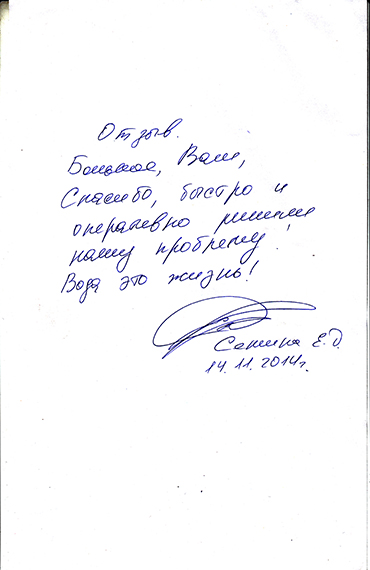 Отзыв.
Большое, Вам,
Спасибо, быстро и
оперативно решили
нашу проблему!
Вода это жизнь!
Е.О.
14.11.2014г.